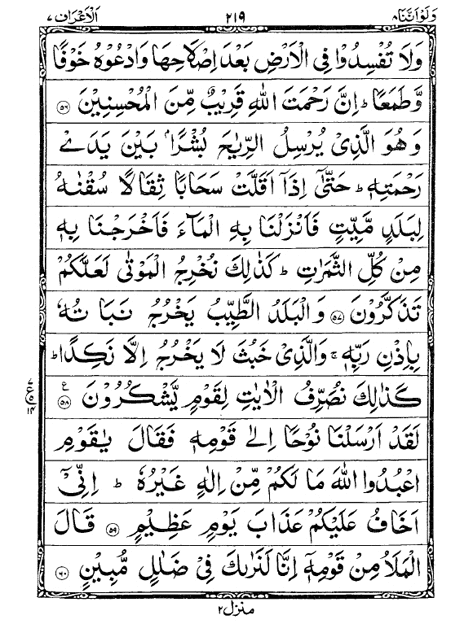 وَلَوْ اَنَّنَا ٨ ٢١٩ اَلْاَعْرَاف ٧
وَلَا تُفْسِدُوْا فِي الْاَرْضِ بَعْدَ اِصْلَاحِهَا وَادْعُوْهُ خَوْفًا
وَّطَمَعًا ؕ اِنَّ رَحْمَتَ اللّٰهِ قَرِيْبٌ مِّنَ الْمُحْسِنِيْنَ ﴿٥٦﴾
وَهُوَ الَّذِيْ يُرْسِلُ الرِّيٰحَ بُشْرًۢا بَيْنَ يَدَيْ
رَحْمَتِهٖ ؕ حَتّٰۤى اِذَاۤ اَقَلَّتْ سَحَابًا ثِقَالًا سُقْنٰهُ
لِبَلَدٍ مَّيِّتٍ فَاَنْزَلْنَا بِهِ الْمَآءَ فَاَخْرَجْنَا بِهٖ
مِنْ كُلِّ الثَّمَرٰتِ ؕ كَذٰلِكَ نُخْرِجُ الْمَوْتٰى لَعَلَّكُمْ
تَذَكَّرُوْنَ ﴿٥٧﴾ وَالْبَلَدُ الطَّيِّبُ يَخْرُجُ نَبَاتُهٗ
بِاِذْنِ رَبِّهٖ ۚ وَالَّذِيْ خَبُثَ لَا يَخْرُجُ اِلَّا نَكِدًا ؕ
كَذٰلِكَ نُصَرِّفُ الْاٰيٰتِ لِقَوْمٍ يَّشْكُرُوْنَ ﴿٥٨﴾ ع
لَقَدْ اَرْسَلْنَا نُوْحًا اِلٰى قَوْمِهٖ فَقَالَ يٰقَوْمِ
اعْبُدُوا اللّٰهَ مَا لَكُمْ مِّنْ اِلٰهٍ غَيْرُهٗ ؕ اِنِّيْۤ
اَخَافُ عَلَيْكُمْ عَذَابَ يَوْمٍ عَظِيْمٍ ﴿٥٩﴾ قَالَ
الْمَلَاُ مِنْ قَوْمِهٖۤ اِنَّا لَنَرٰىكَ فِيْ ضَلٰلٍ مُّبِيْنٍ ﴿٦٠﴾
منزل ٢